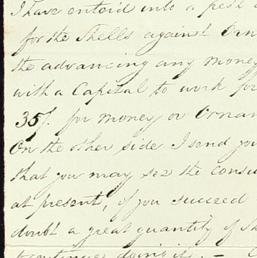 I have entered into a
for the Shells against
the advancing any money
with a Capital to work for
35/. for money or Ornam
On the other side I send you
that you may see the
at present, if you succeed
doubt a great quantity of Sh
continue doing it. –